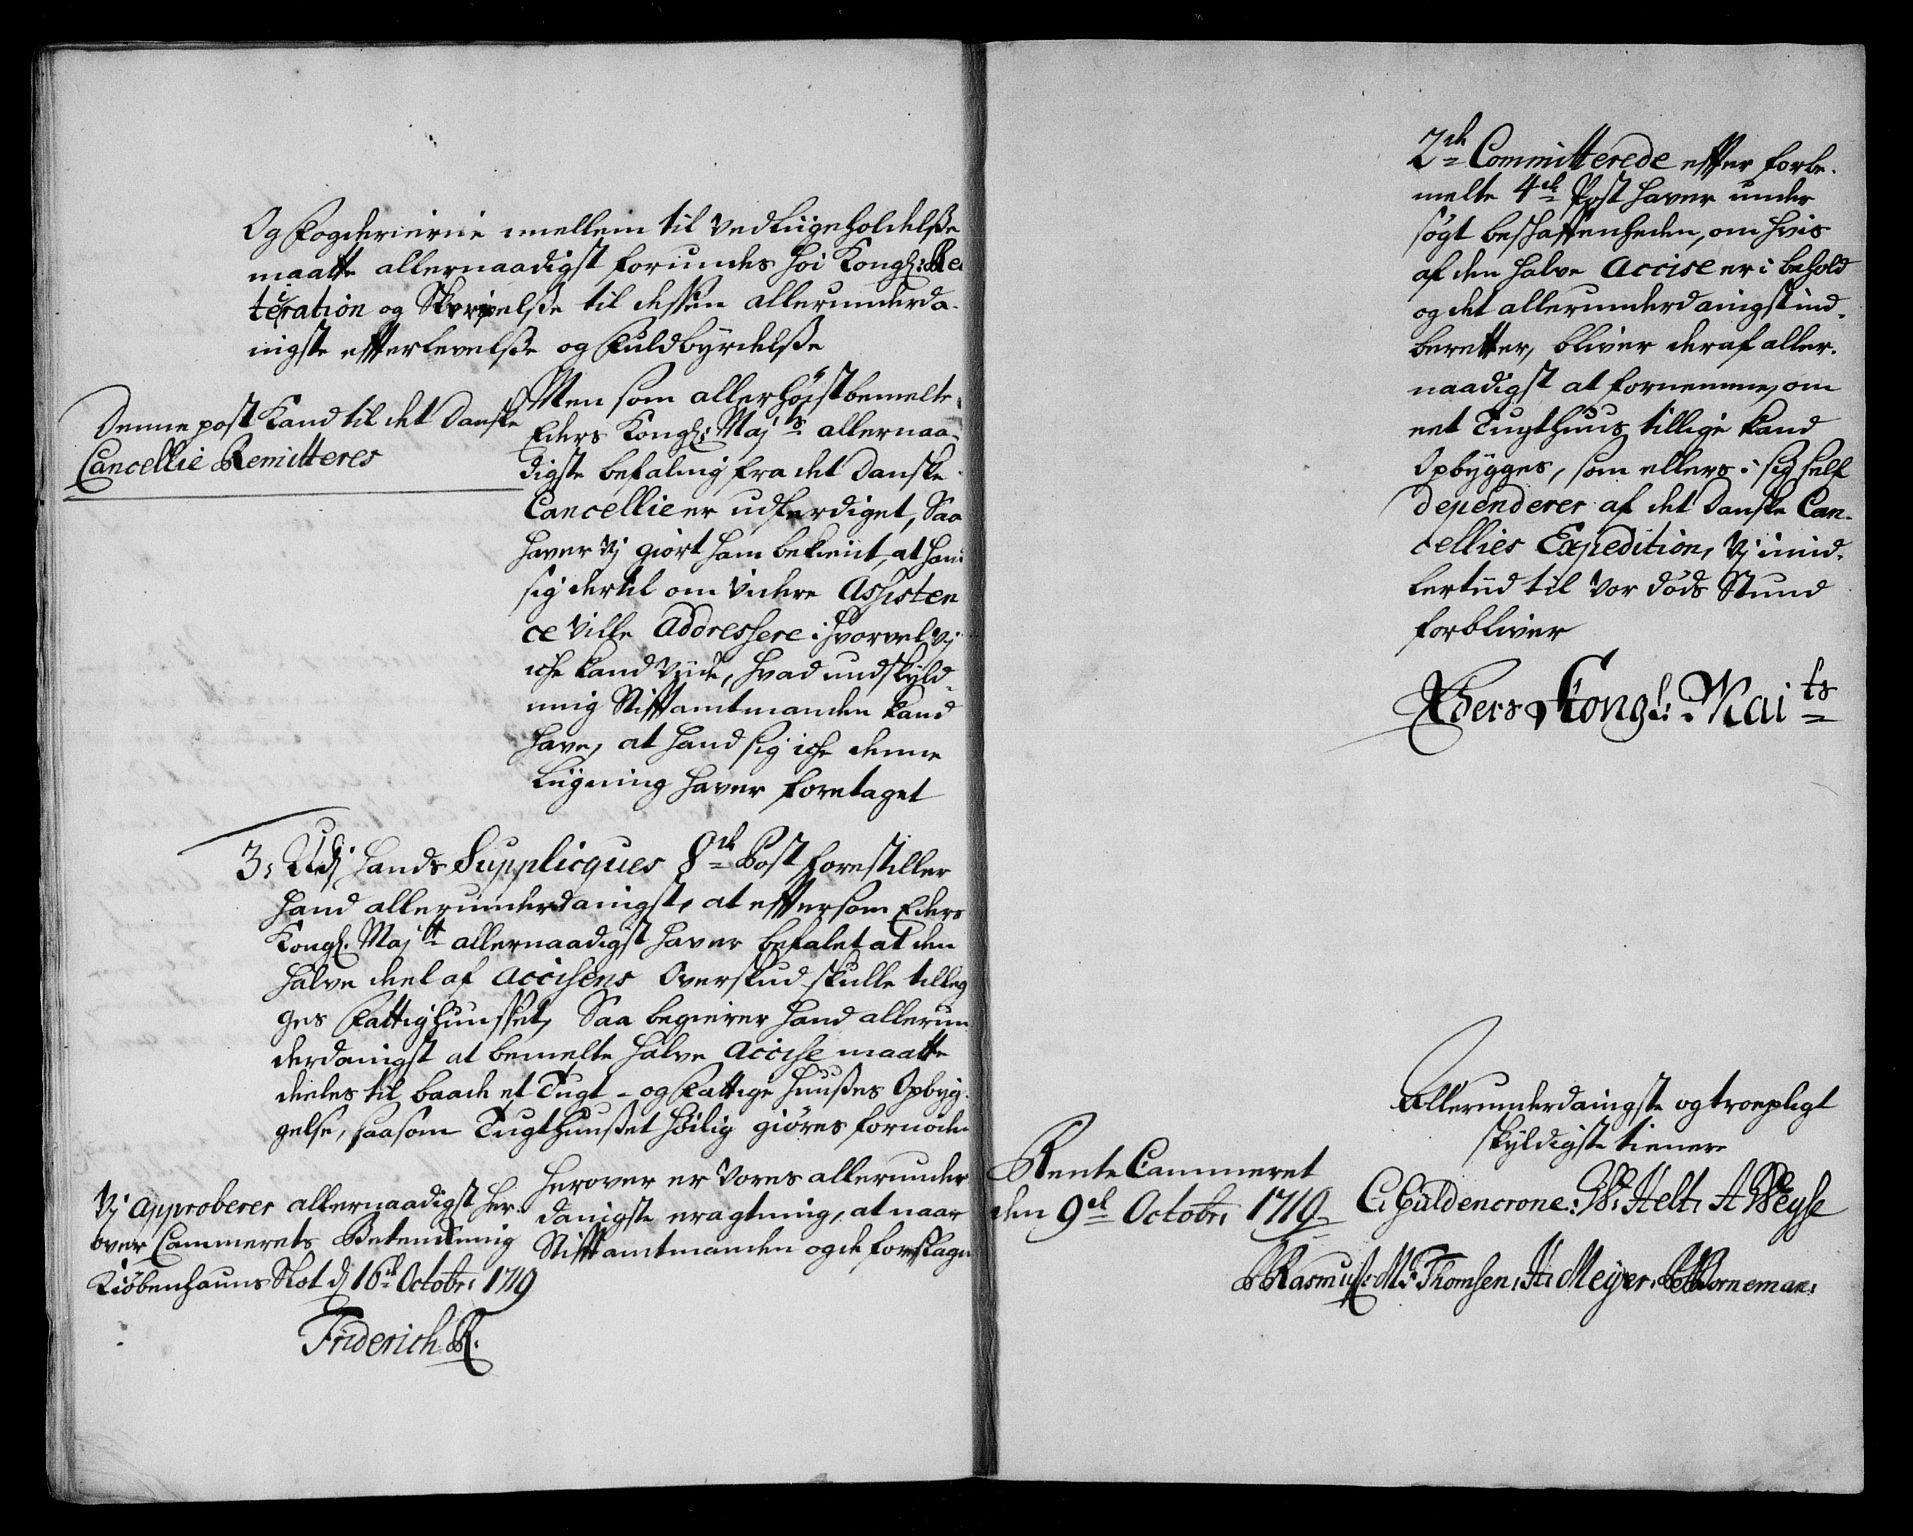 Og Fogderierne imellem til Vedliigeholdelsse
maatte allernaadigst forundes høi Kongl: Re
iteration og Skrivelsse til dessen allerunderda-
nigste effterlevelsse og Fuldbyrdelsse
Denne post Kand til det Danske
Cancellie Remitteres
Men som allerhøjstbemelte
Eders Kongl: Majts allernaa-
digste befaling fra det Danske
Cancellie er udferdiget, Saa
haver Vj giort ham bekient, at hand
sig dertil om videre Assisten
ce ville Addressere, ihvorvel Vj
iche kand viide, hvad undskyld-
ning Stifftamtmanden kand
have, at hand sig iche denne
Liigning haver foretaget
3, Udj hands Supplicques 8de Post forestiller
hand allerunderdanigst, at efftersom Eders
Kongl. Majtt allernaadigst haver befalet at den
halve deel af Accisens Overskud skulle tilleg
ges Fattighuusset, Saa begierer hand allerun
derdanigst at bemelte halve Accise maatte
deeles til baade et Tugt- og Fattige Huusses Opbyg-
gelse, saasom Tugthuusset høilig giøres fornøden
Vj approberer allernaadigst her-
over Cammerets Betenkning
Kiøbenhauns Slot d 16de Octobr: 1719
Friderich R.
herover er Vores allerunder
danigste eragtning, at naar
Stifftamtmanden og de foreslagne
2de Committerede effter forbe-
melte 4de Post haver under
søgt beskaffenheden, om hvis
af den halve Accise er i behold
og det allerunderdanigst ind-
beretter, bliver deraf aller-
naadigst at fornemme, om
eet Tugthuus tillige kand
Opbygges, som ellers i sig self
dependerer af det Danske Can-
cellies Expedition, Vj imid-
lertiid til Vor døds Stund
forbliver
Eders Kongl: Maits
Allerunderdanigste og troepligt
skyldigste tienere
Rente Cammeret
den 9de Octobr: 1719
C. Güldencrone: W: Helt, A Weyse
Rasmuss: M: Thomsen, H: Meyer, Borneman: